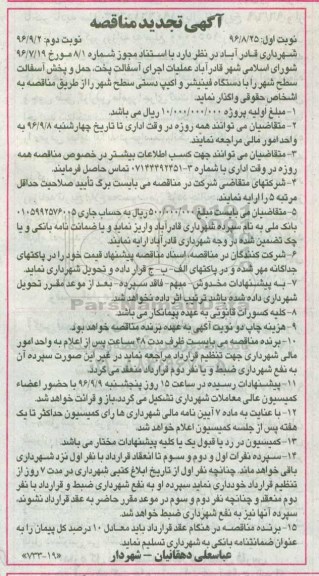 آگهی تجدید مناقصه
نوبت اول: ۹۶/۸/۲۵ نوبت دوم: ۹۶/۹/۲
شهرداری قادر آباد در نظر دارد با استناد مجوز شماره ۸/۱ مورخ ۹۶/۷/۱۹
شورای اسلامی شهر قادر آباد عملیات اجرای آسفالت پخت، حمل و پخش آسفالت
سطح شهر را با دستگاه فینیشر و اکیپ دستی سطح شهر را از طریق مناقصه به
اشخاص حقوقی واگذار نماید.
۱- مبلغ اولیه پروژه ۱۰/۰۰۰/۰۰۰/۰۰۰ ریال می باشد.
۲- متقاضیان می توانند همه روزه در وقت اداری تا تاریخ چهارشنبه ۹۶/۹/۸ به
واحد امور مالی مراجعه نمایند.
۳- متقاضیان می توانند جهت کسب اطلاعات بیشتر در خصوص مناقصه همه
روزه در وقت اداری با شماره ۳-۰۷۱۴۴۴۹۲۴۵۱ تماس حاصل فرمایند.
۴- شرکتهای متقاضی شرکت در مناقصه می بایست برگ تأیید صلاحیت حداقل
مرتبه ۵ را ارایه نمایند.
۵- متقاضیان می بایست مبلغ ۵۰۰/۰۰۰/۰۰۰ ریال به حساب جاری ۰۱۰۵۹۹۲۵۷۶۰۰۵
بانک ملی به نام سپرده شهرداری قادرآباد واریز نماید و یا ضمانت نامه بانکی و یا
چک تضمین شده در وجه شهرداری قادرآباد ارایه نمایند.
۶- شرکت کنندگان در مناقصه، اسناد مناقصه پیشنهاد قیمت خود را در پاکتهای
جداگانه مهر شده و در پاکتهای الف-ب-ج قرار داده و تحویل شهرداری نماید.
۷- به پیشنهادات مخدوش- مبهم- فاقد سپرده- بعد از موعد مقرر تحویل
شهرداری داده شده باشد ترتیب اثر داده نخواهد شد.
۸- کلیه کسورات قانونی به عهده پیمانکار می باشد.
۹- هزینه چاپ دو نوبت آگهی به عهده برنده مناقصه خواهد بود.
۱۰- برنده مناقصه می بایست ظرف مدت ۴۸ ساعت پس از اعلام به واحد امور
مالی شهرداری جهت تنظیم قرارداد مراجعه نماید در غیر این صورت سپرده آن
به نفع شهرداری ضبط و با نفر دوم قرارداد منعقد می گردد.
۱۱- پیشنهادات رسیده در ساعت ۱۵ روز پنجشنبه ۹۶/۹/۹ با حضور اعضاء
کمیسیون عالی معاملات شهرداری تشکیل می گردد، باز و قرائت خواهد شد.
۱۲- با عنایت به ماده ۷ آیین نامه مالی شهرداری ها رای کمیسیون حداکثر تا یک
هفته پس از جلسه کمیسیون اعلام خواهد شد.
۱۳- کمیسیون در رد یا قبول یک یا کلیه پیشنهادات مختار می باشد.
۱۴- سپرده نفرات اول و دوم و سوم تا انعقاد قرارداد با نفر اول نزد شهرداری
باقی خواهد ماند. چنانچه نفر اول از تاریخ ابلاغ کتبی شهرداری در مدت ۷ روز از
تنظیم قرارداد خودداری نماید سپرده او به نفع شهرداری ضبط و قرارداد با نفر
دوم منعقد و چنانچه نفر دوم و سوم در موعد مقرر حاضر به عقد قرارداد نشوند،
سپرده آنها نیز به نفع شهرداری ضبط خواهد شد.
۱۵- برنده مناقصه در هنگام عقد قرارداد باید معادل ۱۰ درصد کل پیمان را به
عنوان ضمانتنامه بانکی به شهرداری تسلیم نماید.
عباسعلی دهقانیان - شهردار «۷۳۳-۱۹»